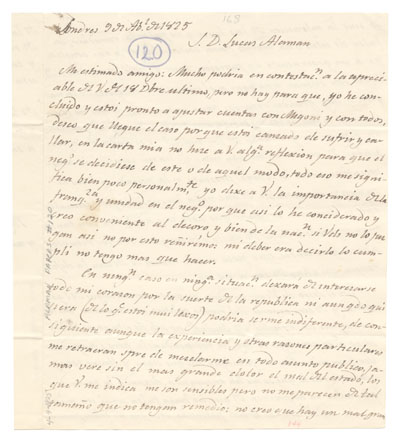 Londres 9 de Ab.l de 1825
120
S. D. Lucas Alaman
Mi estimado amigo: Mucho podria en contestac.n a la apreciable
de V. de 18 Dbre ultimo, pero no hay para que, yo he concluido
y estoi pronto a ajustar cuentas con Megoni y con todos,
deseo que llegue el caso por que estoi cansado de sufrir y callar,
en la carta mia no hize a V. alg.a reflexion para que el
neg.o se decidiese de este o de aquel modo, todo eso me significa
bien poco personalm.te yo dixe a V. la importancia de la
franq.a y unidad en el neg.o por que asi lo he conciderado y
creo conveniente al decoro y bien de la nac.n si Vds no lo juzgan
asi no por esto reñiremos; mi deber era decirlo lo cumpli
no tengo mas que hacer.
En ning.n caso en ning.a situac.n dexará de interesarse
todo mi corazon por la suerte de la republica ni aun q.do quisiera
(de lo q.e estoi mui lexos) podria serme indiferente, de consiguiente
aunque la experiencia y otras razones particulares
me retraeran spre de mezclarme en todo asunto publico, jamas
veré sin el mas grande dolor el mal del estado, los
que V. me indica me son sensibles pero no me parecen de tal
tamaño que no tengan remedio; no creo que hay un mal gran